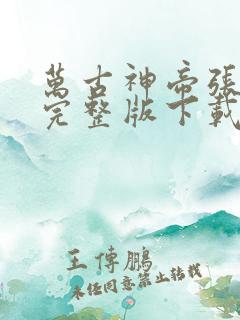 萬古神帝張
完整版下載
王傳鵬
未经同意禁止转载